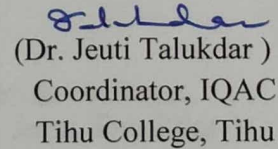 (Dr. Jeuti Talukdar )
Coordinator, IQAC
Tihu College, Tihu